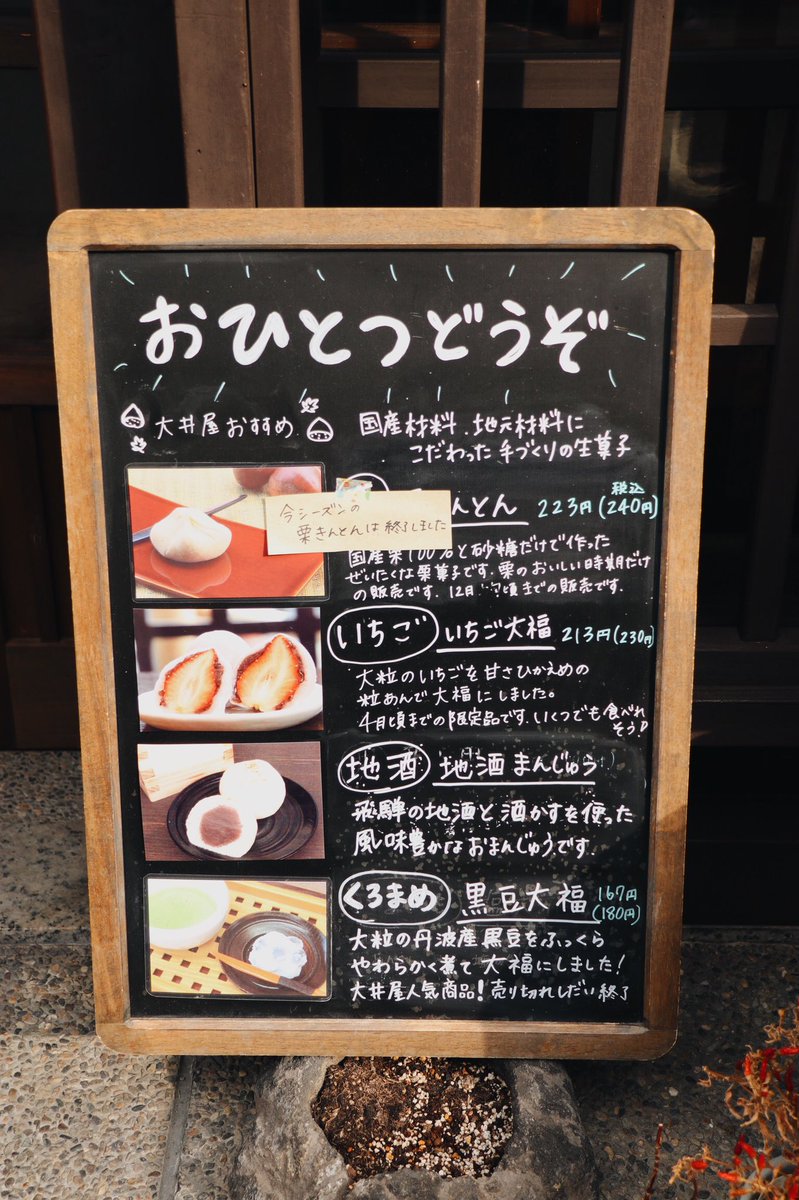 おひとつどうぞ
大井屋おすすめ
国産材料、地元材料に
こだわった手づくりの生菓子
今シーズンの
栗きんとんは終了しました
んとん 223円(税込240円)
国産栗100%と砂糖だけで作った
ぜいたくな栗菓子です。栗のおいしい時期だけ
の販売です。12月 頃までの販売です。
いちご いちご大福 213円(230円)
大粒のいちごを甘さひかえめの
粒あんで大福にしました。
4月頃までの限定品です。いくつでも食べれ
そう♪
地酒 地酒まんじゅう
飛騨の地酒と酒かすを使った
風味豊かなおまんじゅうです。
くろまめ 黒豆大福 167円
(180円)
大粒の丹波産黒豆をふっくら
やわらかく煮て大福にしました!
大井屋人気商品!売り切れしだい終了